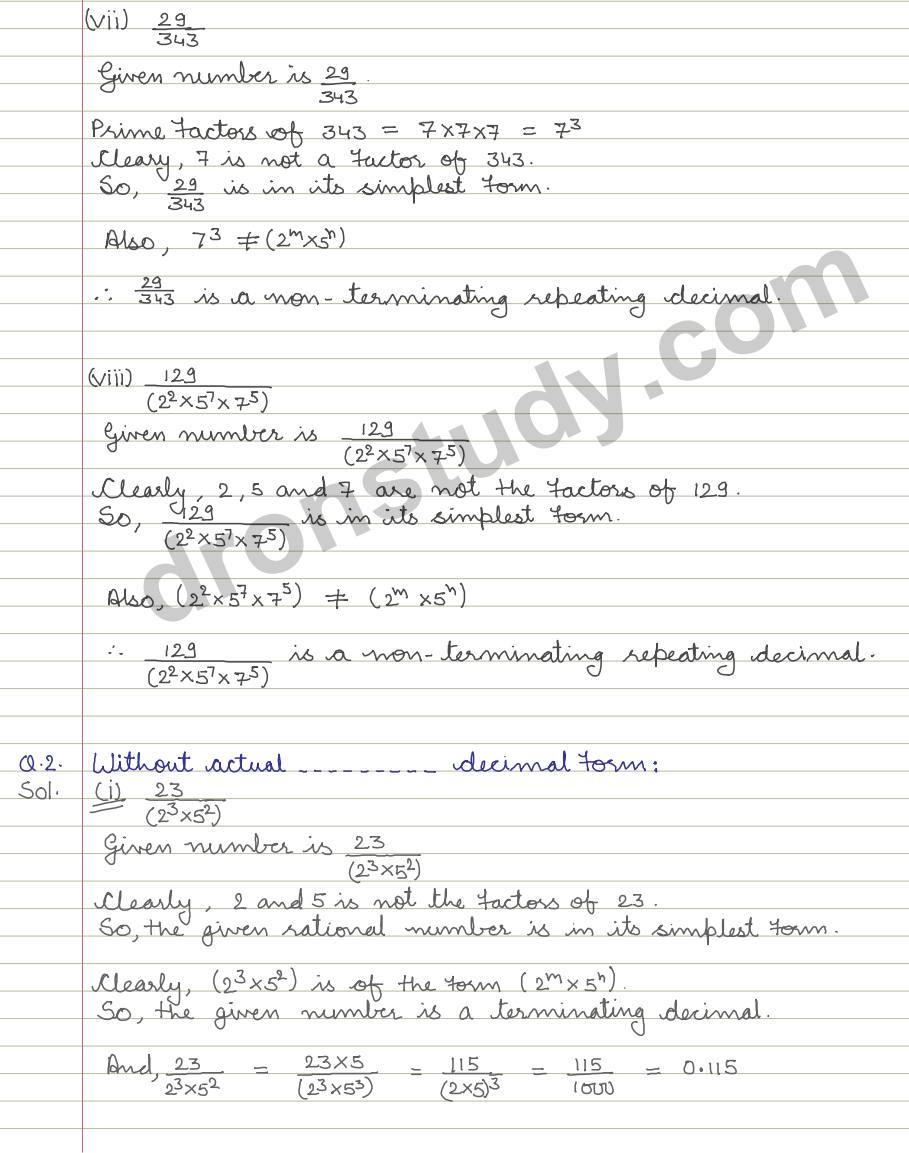 (vii) 29/343
Given number is 29/343.
Prime Factors of 343 = 7×7×7 = 7³
Cleary, 7 is not a factor of 343.
So, 29/343 is in its simplest form.
Also, 7³ ≠ (2ᵐ×5ⁿ)
∴ 29/343 is a non-terminating repeating decimal.
(viii) 129/(2²×5⁷×7⁵)
Given number is 129/(2²×5⁷×7⁵)
Clearly, 2, 5 and 7 are not the factors of 129.
So, 129/(2²×5⁷×7⁵) is in its simplest form.
Also, (2²×5⁷×7⁵) ≠ (2ᵐ×5ⁿ)
∴ 129/(2²×5⁷×7⁵) is a non-terminating repeating decimal.
Q.2. Without actual --------- decimal form:
Sol. (i) 23/(2³×5²)
Given number is 23/(2³×5²)
Clearly, 2 and 5 is not the factors of 23.
So, the given rational number is in its simplest form.
Clearly, (2³×5²) is of the form (2ᵐ×5ⁿ).
So, the given number is a terminating decimal.
And, 23/2³×5² = 23×5/(2³×5³) = 115/(2×5)³ = 115/1000 = 0.115
dronstudy.com